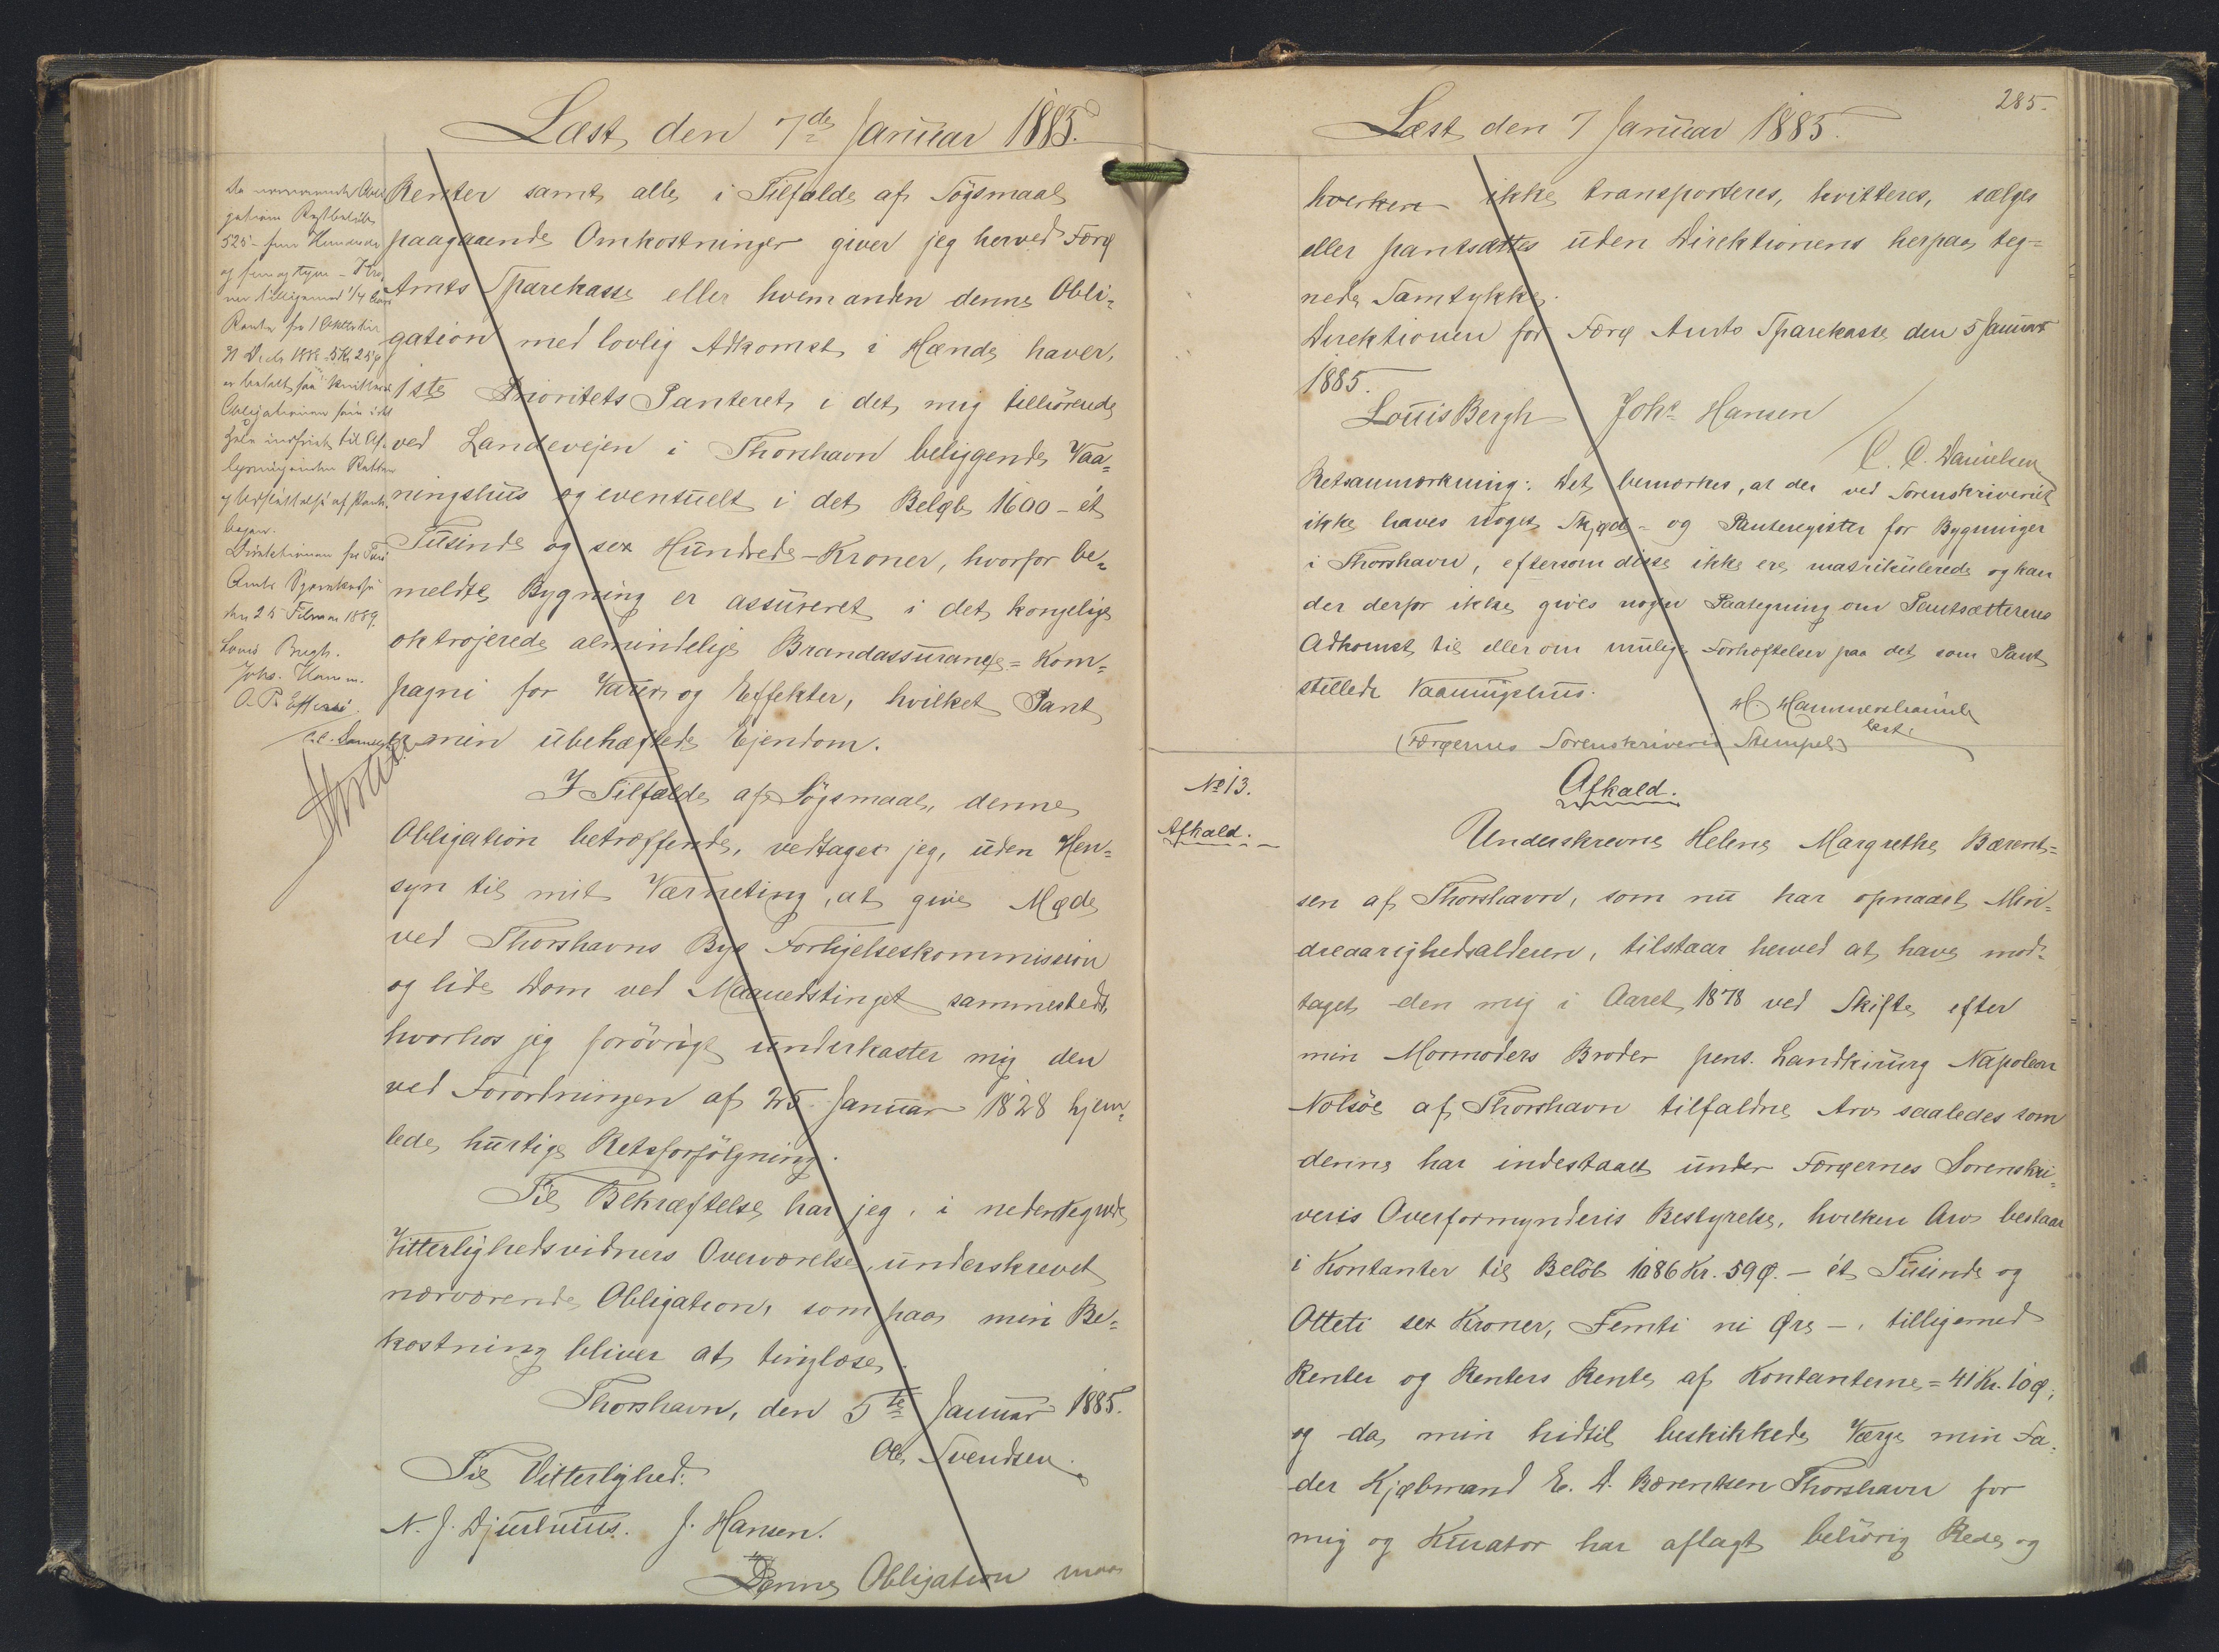 Læst den 7de Januar 1885.
Renter samt alle i Tilfælde af Søgsmaal
paagaaende Omkostninger giver jeg herved Færø
Amts Sparekasse eller hvemanden denne Obli-
gation med lovlig Adkomst i Hænde haver,
1ste Prioritets Panteret i det mig tilhørende
ved Landevejen i Thorshavn beliggende Vaa-
ningshus og eventuelt i det Beløb 1600 – ét
Tusinde og sex Hundrede – Kroner, hvorfor be-
meldte Bygning er assureret i det kongelige
oktrojerede almindelige Brandassurance-Kom-
pagni for Varer og Effekter, hvilket Pant
er min ubehæftede Ejendom.
I Tilfælde af Søgsmaal, denne
Obligation betræffende, vedtager jeg, uden Hen-
syn til mit Værneting, at give Møde
ved Thorshavns Bys Forligelseskommission
og lide Dom ved Maanedstinget sammesteds,
hvorhos jeg forövrigt underkaster mig den
ved Forordningen af 25 Januar 1828 hjem-
lede hurtige Retsforfölgning.
Til Bekræftelse har jeg, i nedentegnede
Vitterlighedsvidners Overværelse, underskrevet
nærværende Obligation, som paa min Be-
kostning bliver at tinglæse.
Thorshavn, den 5te Januar 1885.
Ole Svendsen.
Til Vitterlighed:
N. J. Djurhuus. J. Hansen.
Denne Obligation maa
Da nærværende Obli-
gations Restbeløb
525 – fem Hundrede
og fem og tyve – Kro-
ner tilligemed 1/4 Aars
Rente fra 1 Oktober til
31 Decbr 5 Kr 25 Ø
er betalt, saa kvitteres
Obligationen som i det
Hele indfriet til Af-
lysning inden Retten
og Udslettelse af Pante-
bogen.
Direktionen for Færø
Amts Sparekasse
den 25 Februar 1889.
Louis Bergh.
Johs. Hansen.
C. C. Danielsen
285.
Læst den 7 Januar 1885.
hverken ikke transporteres, kvitteres, sælges
eller pantsættes uden Direktionens herpaa teg-
nede Samtykke.
Direktionen for Færø Amts Sparekasse den 5 Januar
1885.
Louis Bergh Johs Hansen
C. C. Danielsen
Retsanmærkning: Det bemærkes, at der ved Sorenskriveriet
ikke haves noget Skjøde- og Panteregister for Bygninger
i Thorshavn, eftersom disse ikke ere matrikulerede og kan
der derfor ikke gives nogen Paategning om Pantsætterens
Adkomst til eller om mulige Forhæftelser paa det som Pant
stillede Vaaningshus.
H. Hammershaimb
kst.
(Færøernes Sorenskriveris Stempel)
No 13.
Afkald.
Afkald.
Underskrevne Helene Margrethe Bærent-
sen af Thorshavn, som nu har opnaaet Min-
dreaarighedsalderen, tilstaar herved at have mod-
taget den mig i Aaret 1878 ved Skifte efter
min Mormoders Broder pens. Landkirurg Napoleon
Nolsöe af Thorshavn tilfaldne Arv saaledes som
denne har indestaaet under Færøernes Sorenskri-
veris Overformynderis Bestyrelse, hvilken Arv bestaar
i Kontanter til Belöb 1086 Kr. 59 Ø. – ét Tusinde og
Otteti sex Kroner, Femti ni Øre –, tilligemed
Renter og Renters Rente af Kontanterne = 41 Kr. 10 Ø;
og da min hidtil beskikkede Værge min Fa-
der Kjøbmand E. D. Bærentsen Thorshavn for
mig og Kurator har aflagt behörig Rede og